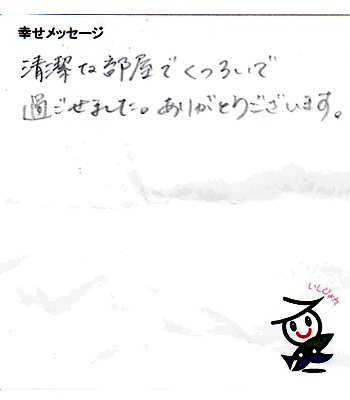 幸せメッセージ
清潔な部屋でくつろいで
過ごせました。ありがとうございます。
いしぴょん